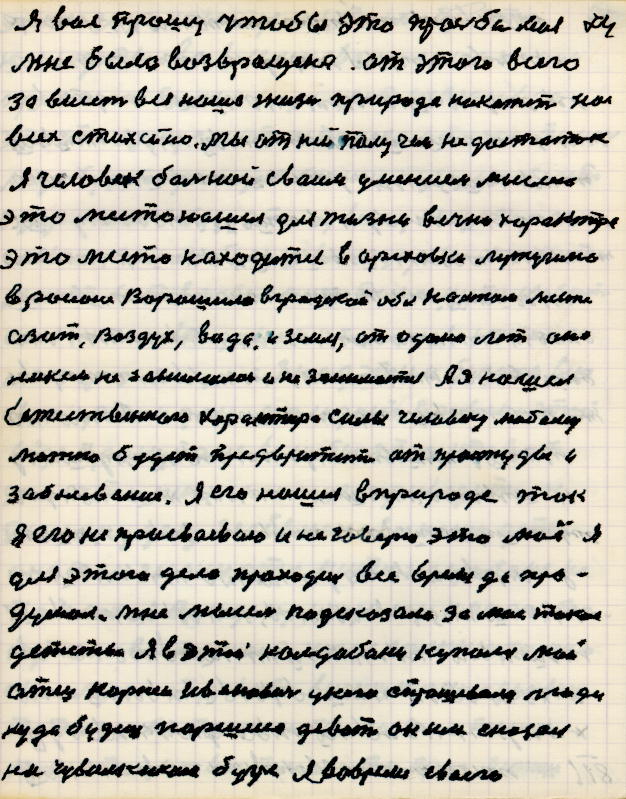 Я вас прошу чтобы это просьба моя
мне была возвращена. от этого всего
за вместе вся наша жизнь природа накажет нас
всех стихейно. Мы от ней получим недостаток
Я человек больной своим умением мыслию
это место нашел для жизни вечно характера
это место находится в ореховки
в районе Ворошиловградской обл На этом месте
азот, воздух, вода, и земля, от адама лет оно
никем не занималася и не занимается А я нашел
Естественного характера силы человеку любому
можно будет предвратить от простуды и
заболевание. Я его нашел в природе так
Я его не присваеваю и не говорю это моё Я
для этого дела проходил все время да про-
думал. мне мысля подсказала за мое такое
детство Я в этой колдобани купался мой
отец Корней Иванович у него спрашивали люди
куда будеш паршика девать он им сказал
на чувилкином бугре Я вовремя своего